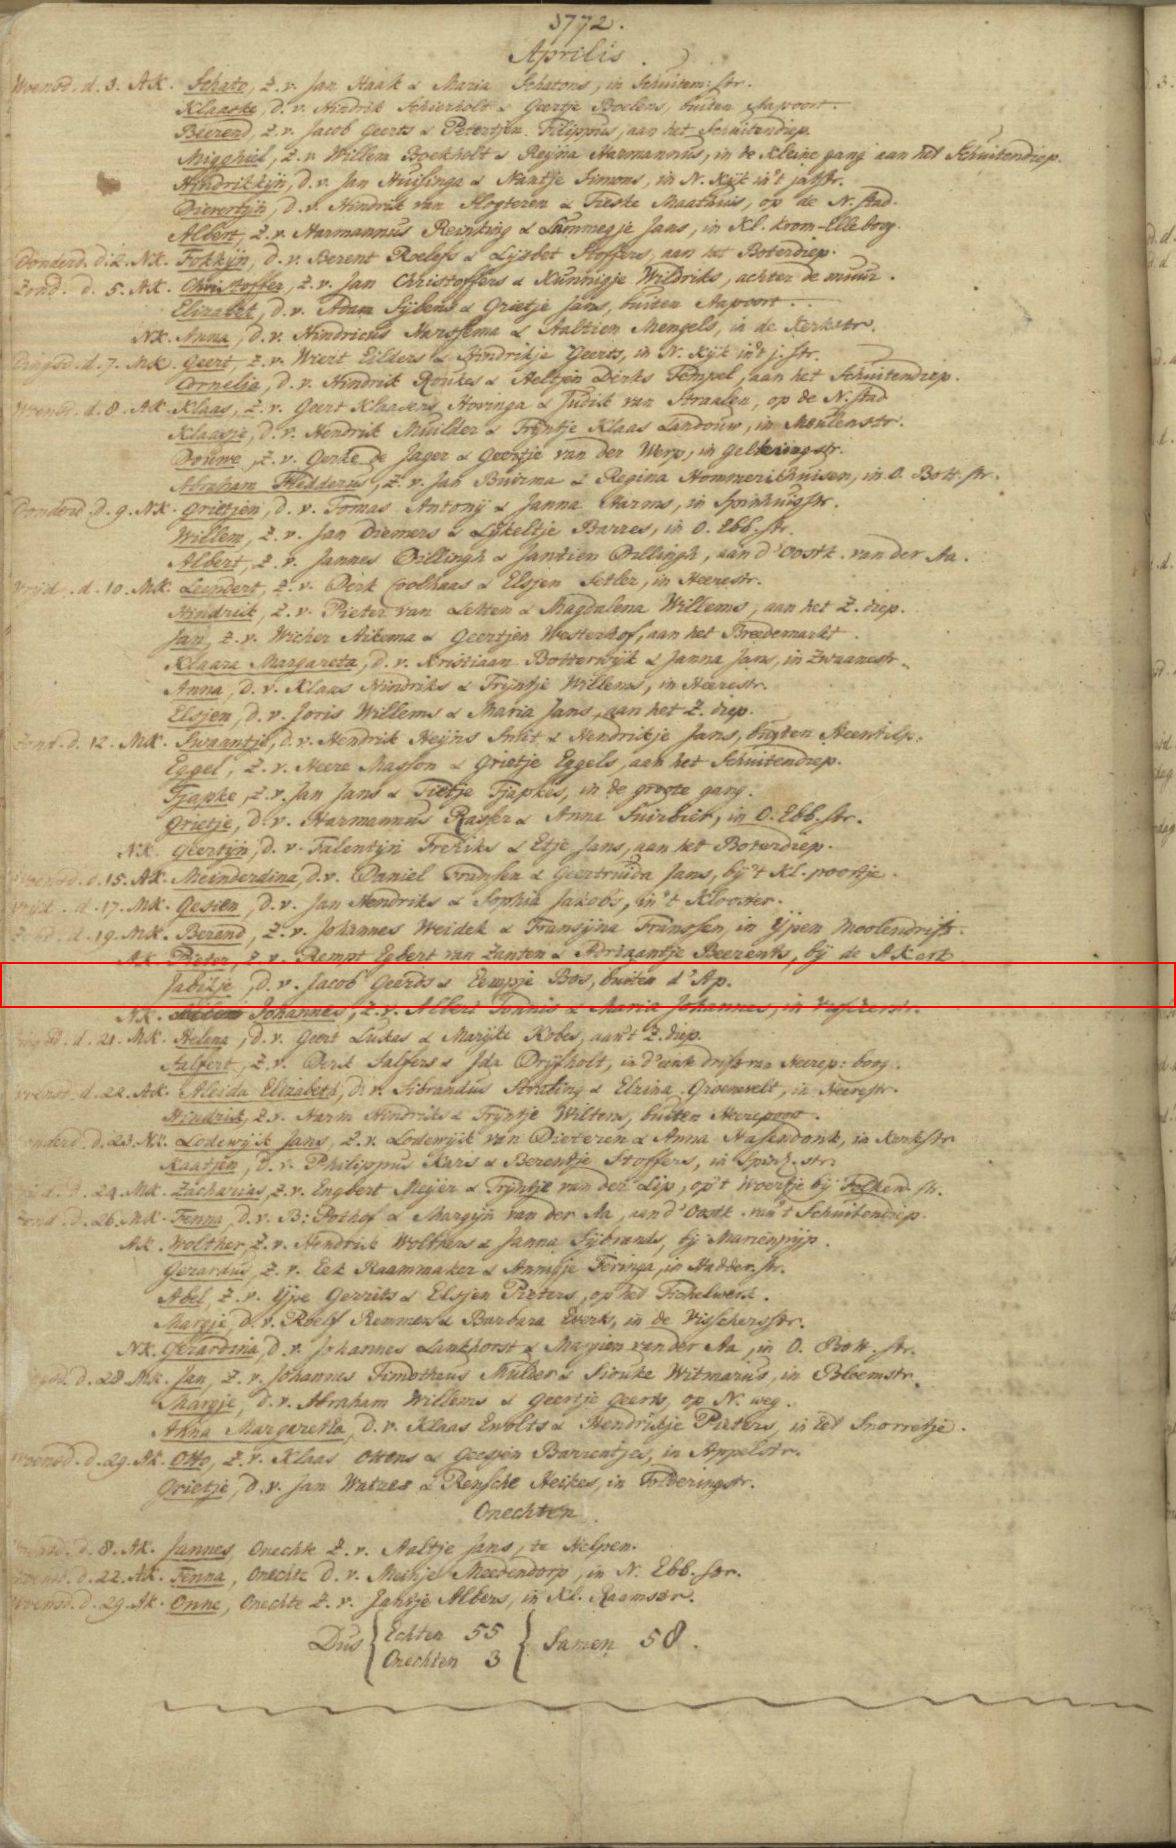 1772.
Aprilis.
Woensd. d. 3. AK. Schato, z. v. Jan Haak & Maria Schatons, in Schuiten: str.
Klaaske, d. v. Hindrik Schierholt & Geertje Boelens, buiten Apoort.
Beerend, z. v. Jacob Geerts & Petertjen Filippus, aan het Schuitendiep.
Migghiel, z. v. Willem Boekholt & Reyna Harmannus, in de Kleine gang aan het Schuitendiep.
Hindrikkijn, d. v. Jan Huisinga & Nantje Simons, in N. Kijk in't jatstr.
Dievertijn, d. v. Hindrik van Slogteren & Fieske Maathuis, op de N. stad.
Albert, z. v. Harmannus Reinking & Lammegje Jans, in Kl. krom-Elleboog.
Donderd. d. 2. NK. Fokkijn, d. v. Berent Roelefs & Lijsbet Stoffers, aan het Boterdiep.
Zond. d. 5. AK. Christoffer, z. v. Jan Christoffers & Kunnigje Wildriks, achter de muur.
Elizabet, d. v. Adam Sijbens & Grietje Jans, buiten Aapoort.
NK. Anna, d. v. Hindricus Harssema & Aaltien Mengels, in de Kerkstr.
Dingsd. d. 7. MK. Geert, z. v. Wiert Eilders & Hindrikje Geerts, in N. Kijk in't j. str.
Cornelia, d. v. Hindrik Roukes & Aeltjen Dirks Tempel, aan het Schuitendiep.
Woensd. d. 8. AK. Klaas, z. v. Geert Klaasens Hovinga & Judik van Straalen, op de N. stad
Klaasje, d. v. Hendrik Muilder & Trijntje Klaas Landouw, in Meulenstr.
Douwe, z. v. Gerke de Jager & Geertje van der Werp, in Gelkeingstr.
Abraham Hedderus, z. v. Jan Buirma & Regina Hommerikhuisen, in O. Bott. str.
Donderd. d. 9. NK. Grietien, d. v. Tomas Antonij & Janna Harms, in Spinhuisstr.
Willem, z. v. Jan Diemers & Lijkeltje Barres, in O. Ebb. str.
Albert, z. v. Jannes Dillingh & Jantien Dillingh, aan d'Oostk. van der Aa.
Vrijd. d. 10. MK. Leendert, z. v. Dirk Coolhaas & Elsjen Setler, in Heerestr.
Hindrik, z. v. Pieter van Letten & Magdalena Willems, aan het Z. diep.
Jan, z. v. Wicher Aikema & Geertjen Westerhof, aan het Breedemarkt.
Klaara Margareta, d. v. Kristiaan Botterwijk & Janna Jans, in Zwaanestr.
Anna, d. v. Klaas Hindriks & Trijntje Willems, in Heerestr.
Elsjen, d. v. Joris Willems & Maria Jans, aan het Z. diep.
Zond. d. 12. MK. Swaantje, d. v. Hendrik Heijns Smit & Hendrikje Jans, buyten Steentilp.
Eggel, z. v. Heere Masson & Grietje Eggels, aan het Schuitendiep.
Tjapke, z. v. Jan Jans & Tietje Tjapkes, in de groote gang.
Grietje, d. v. Harmannus Rasker & Anna Suirbier, in O. Ebb. str.
NK. Geertijn, d. v. Falentijn Freriks & Etje Jans, aan het Boterdiep.
Woensd. d. 15. AK. Meinderdina, d. v. Daniel Franssen & Geertruida Jans, bij 't Kl. poortje.
Vrijd. d. 17. MK. Gesien, d. v. Jan Hendriks & Sophia Jakobs, in 't Klooster.
Zond. d. 19. MK. Berand, z. v. Johannes Weidek & Fransijna Franssen, in Ypen Moolendrift.
AK. Pieter, z. v. Rempt Egbert van Zanten & Adriaantje Beerents, bij de AKerk
Jabelje, d. v. Jacob Geerds & Eempje Bos, buiten d'Ap.
NK. Johannes, z. v. Albert Tonnis & Maria Johannes, in Visscherstr.
Dingsd. d. 21. MK. Helena, d. v. Geert Lukas & Marijke Kobes, aan't Z. diep.
Salfert, z. v. Derk Salfers & Ida Drijfholt, in d'eerste drift van Heerep: boog.
Woensd. d. 22. AK. Aleida Elizabeth, d. v. Sibrandus Strating & Elzina Groenevelt, in Heerestr.
Hindrik, z. v. Harm Hindriks & Trijntje Wiltens, buiten Heerepoort.
Donderd. d. 23. NK. Lodewijk Jans, z. v. Lodewijk van Dieteren & Anna Hasendonk, in Kerkstr
Kaatjen, d. v. Philippus Karis & Berentje Stoffers, in Spinh. str.
Vrijd. d. 24. MK. Zacharias, z. v. Engbert Meijer & Trijntje van der Lip, op 't Woertje bij Folken str.
Zond. d. 26. MK. Fenna, d. v. B: Pothof & Margijn van der Aa, aan d'Oostk. van 't Schuitendiep.
AK. Wolther, z. v. Hendrik Wolthers & Janna Sijbrands, bij Marienpijp.
Gerardus, z. v. Eek Raammaker & Annigje Feringa, in Hadder. str.
Abel, z. v. Ype Gerrits & Elsjen Pieters, op het Tichelwerk.
Margje, d. v. Roelf Remmers & Barbara Everts, in de Visschersstr.
NK. Gerardina, d. v. Johannes Lankhorst & Margien van der Aa, in O. Bott. str.
Dingsd. d. 28. MK. Jan, z. v. Johannes Timotheus Mulder & Siouke Witmarus, in Bloemstr.
Margje, d. v. Abraham Willems & Geertje Geerts, op N. weg.
Anna Margaretha, d. v. Klaas Ewolts & Hendrikje Pieters, in het Snorretje.
Woensd. d. 29. AK. Otto, z. v. Klaas Ottens & Geesjen Barrentjes, in Appelstr.
Grietje, d. v. Jan Watzes & Rensche Heikes, in Folderingstr.
Onechten.
Woensd. d. 8. AK. Jannes, Onechte z. v. Aaltje Jans, te Helpen.
Woensd. d. 22. AK. Fenna, Onechte d. v. Meinje Meedendorp, in N. Ebb. str.
Woensd. d. 29. AK. Onne, Onechte z. v. Jantje Albers, in Kl. Raamstr.
Dus { Echten 55 } Samen 58.
Onechten 3